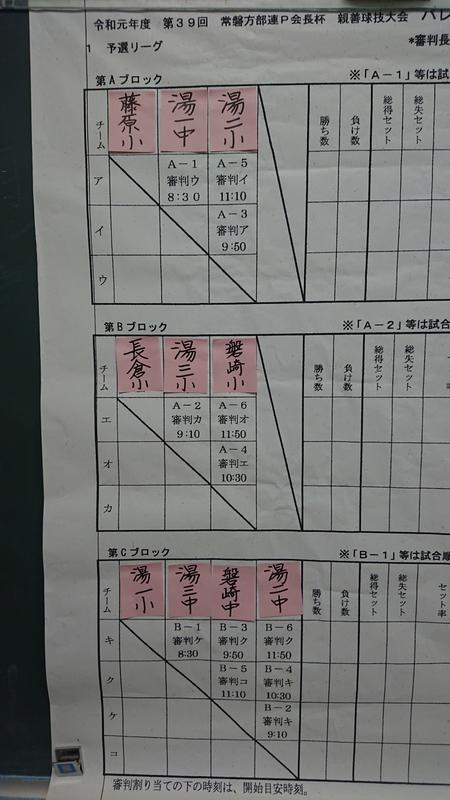 令和元年度 第39回 常磐方部連P会長杯 親善球技大会 バレ
*審判長
1 予選リーグ
第Aブロック ※「A-1」等は試
チーム 藤原小 湯一中 湯二小 勝ち数 負け数 総得セット 総失セット
ア A-1 審判ウ 8:30 A-5 審判イ 11:10
イ A-3 審判ア 9:50
ウ
第Bブロック ※「A-2」等は試合
チーム 長倉小 湯三小 磐崎小 勝ち数 負け数 総得セット 総失セット
エ A-2 審判カ 9:10 A-6 審判オ 11:50
オ A-4 審判エ 10:30
カ
第Cブロック ※「B-1」等は試合順
チーム 湯一小 湯三中 磐崎中 湯二中 勝ち数 負け数 総得セット 総失セット セット率
キ B-1 審判ケ 8:30 B-3 審判ク 9:50 B-6 審判ク 11:50
ク B-5 審判コ 11:10 B-4 審判キ 10:30
ケ B-2 審判キ 9:10
コ
審判割り当ての下の時刻は、開始目安時刻。